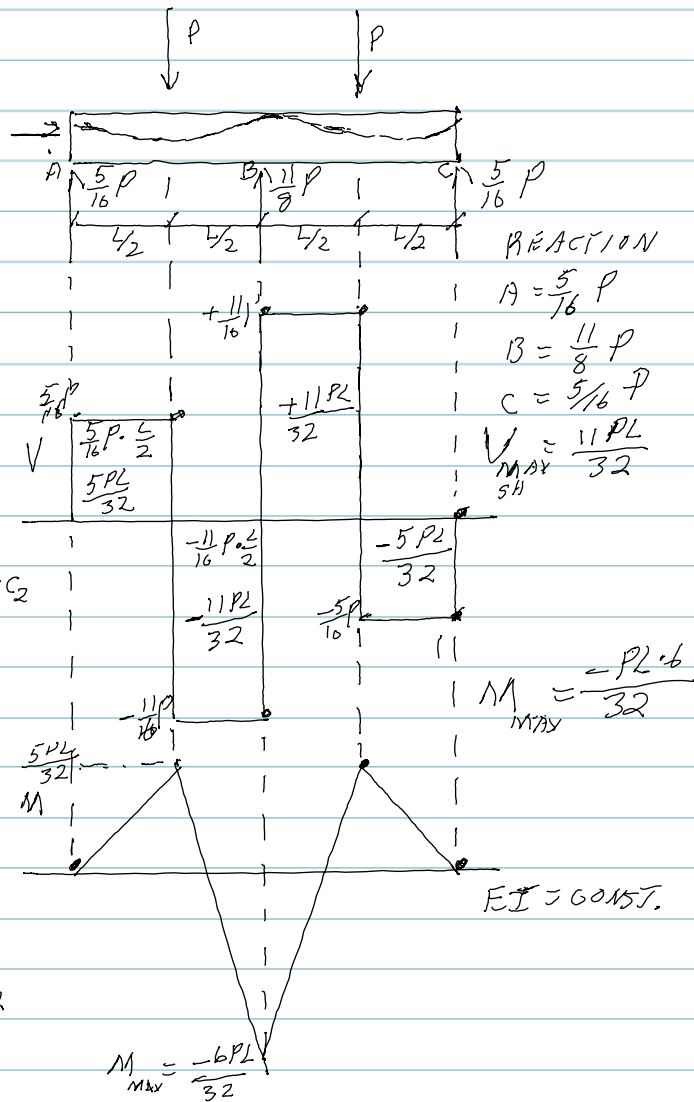 P P
A 5/16 P B 11/8 P C 5/16 P
L/2 L/2 L/2 L/2
REACTION
A = 5/16 P
B = 11/8 P
C = 5/16 P
V MAX SH = 11PL/32
+11/16 P
+11PL/32
5/16 P
V
5/16 P · L/2
5PL/32
-11/16 P · L/2
-11PL/32
-5PL/32
C2
-5/16 P
-11/16 P
M MAX = -PL·6/32
5PL/32
M
EI = CONST.
M MAX = -6PL/32